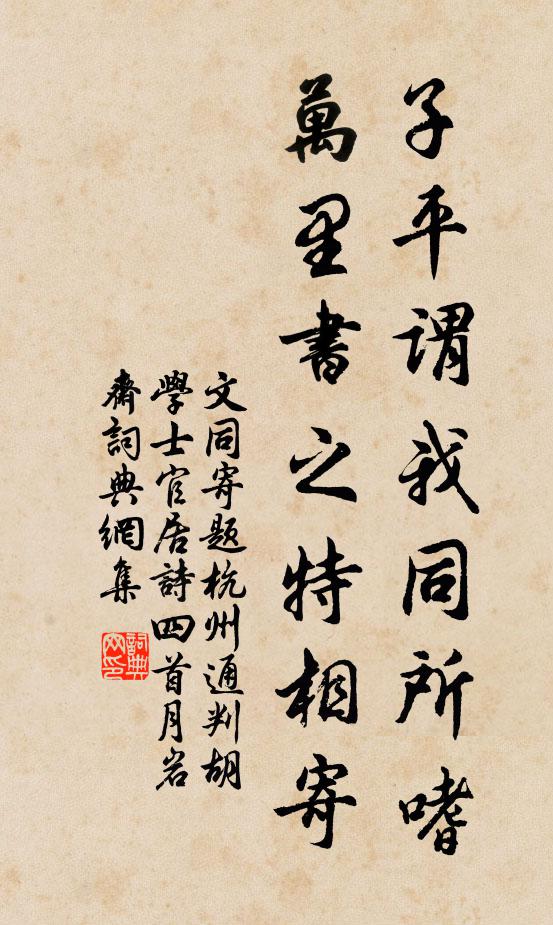 子平謂我同所嗜
萬里書之特相寄
文同寄題杭州通判胡
學士官居詩四首月岩
齋詞典網集
詞典网印